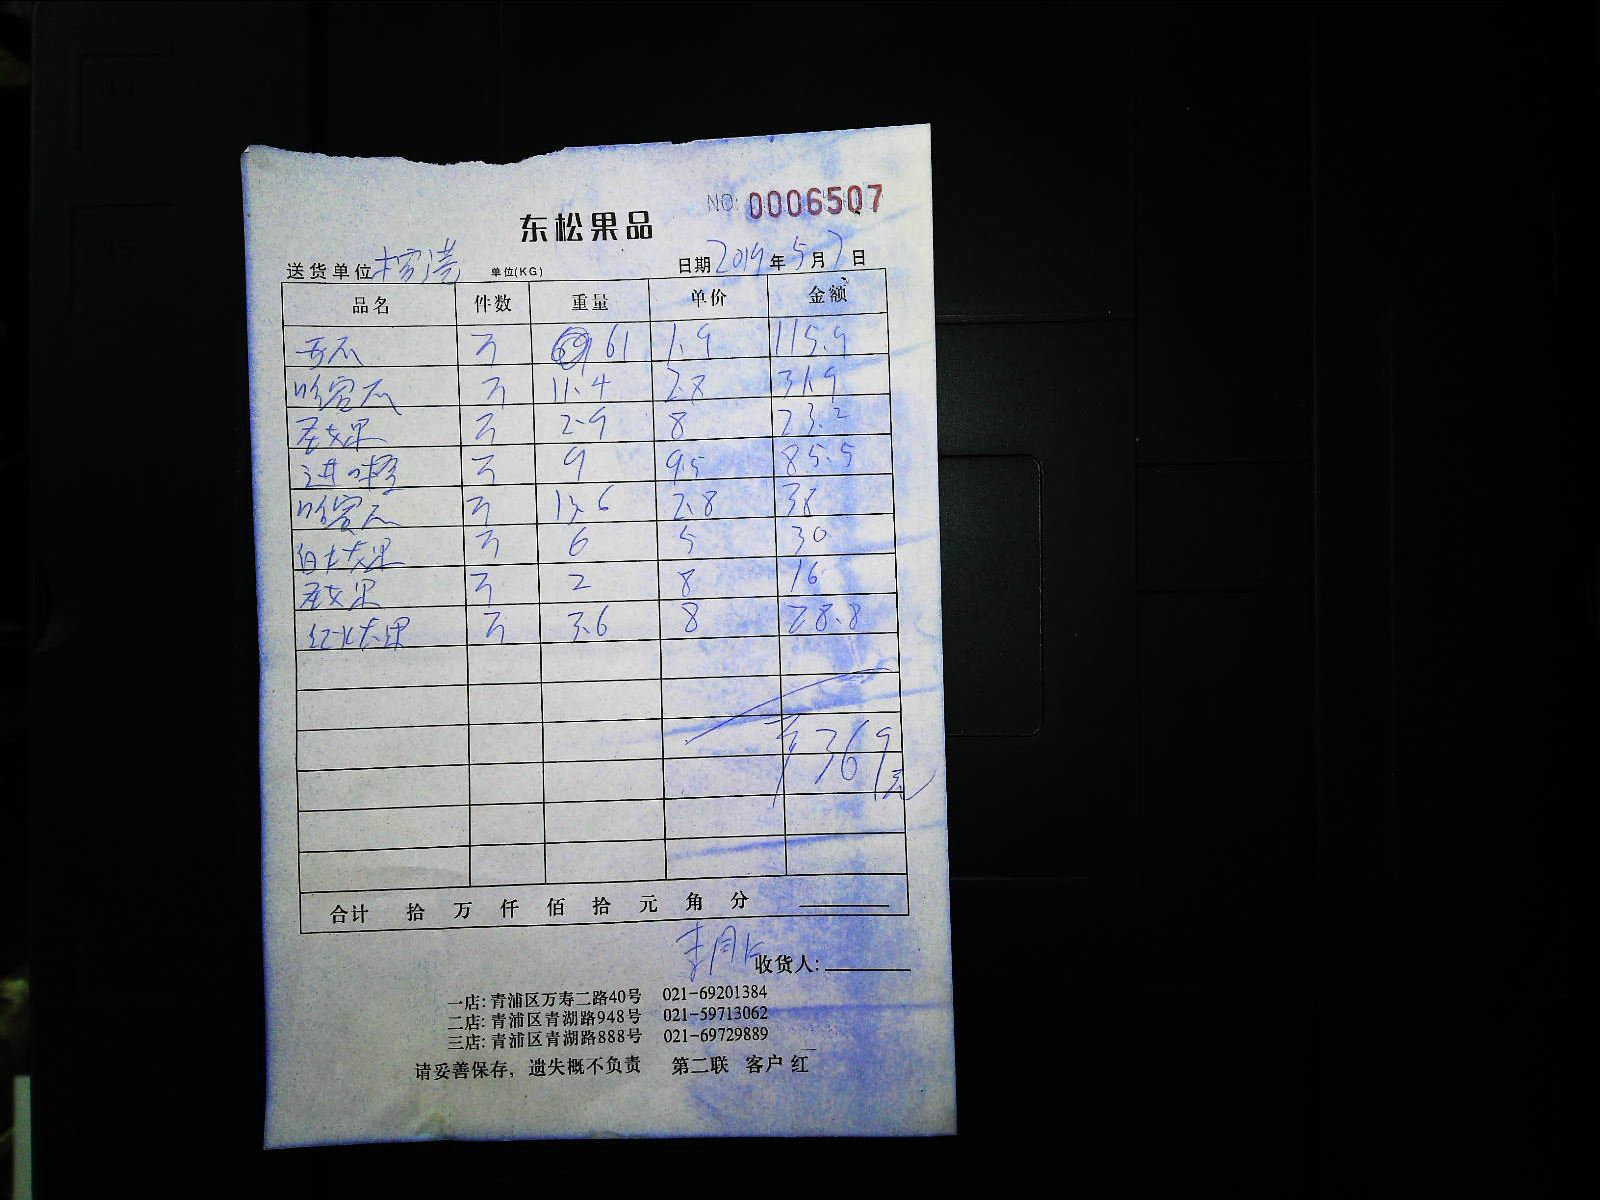 NO: 0006507
东松果品
送货单位 单位(KG) 日期 2019 年 5 月 7 日
品名 件数 重量 单价 金额
61 1.9 115.9
哈密瓜 11.4 2.8 31.9
圣女果 2.9 8 23.2
进口橙 9 9.5 85.5
哈密瓜 13.6 2.8 38
白火龙果 6 5 30
圣女果 2 8 16
红火龙果 3.6 8 28.8
369元
合计 拾 万 仟 佰 拾 元 角 分
收货人:
一店: 青浦区万寿二路40号 021-69201384
二店: 青浦区青湖路948号 021-59713062
三店: 青浦区青湖路888号 021-69729889
请妥善保存，遗失概不负责 第二联 客户 红